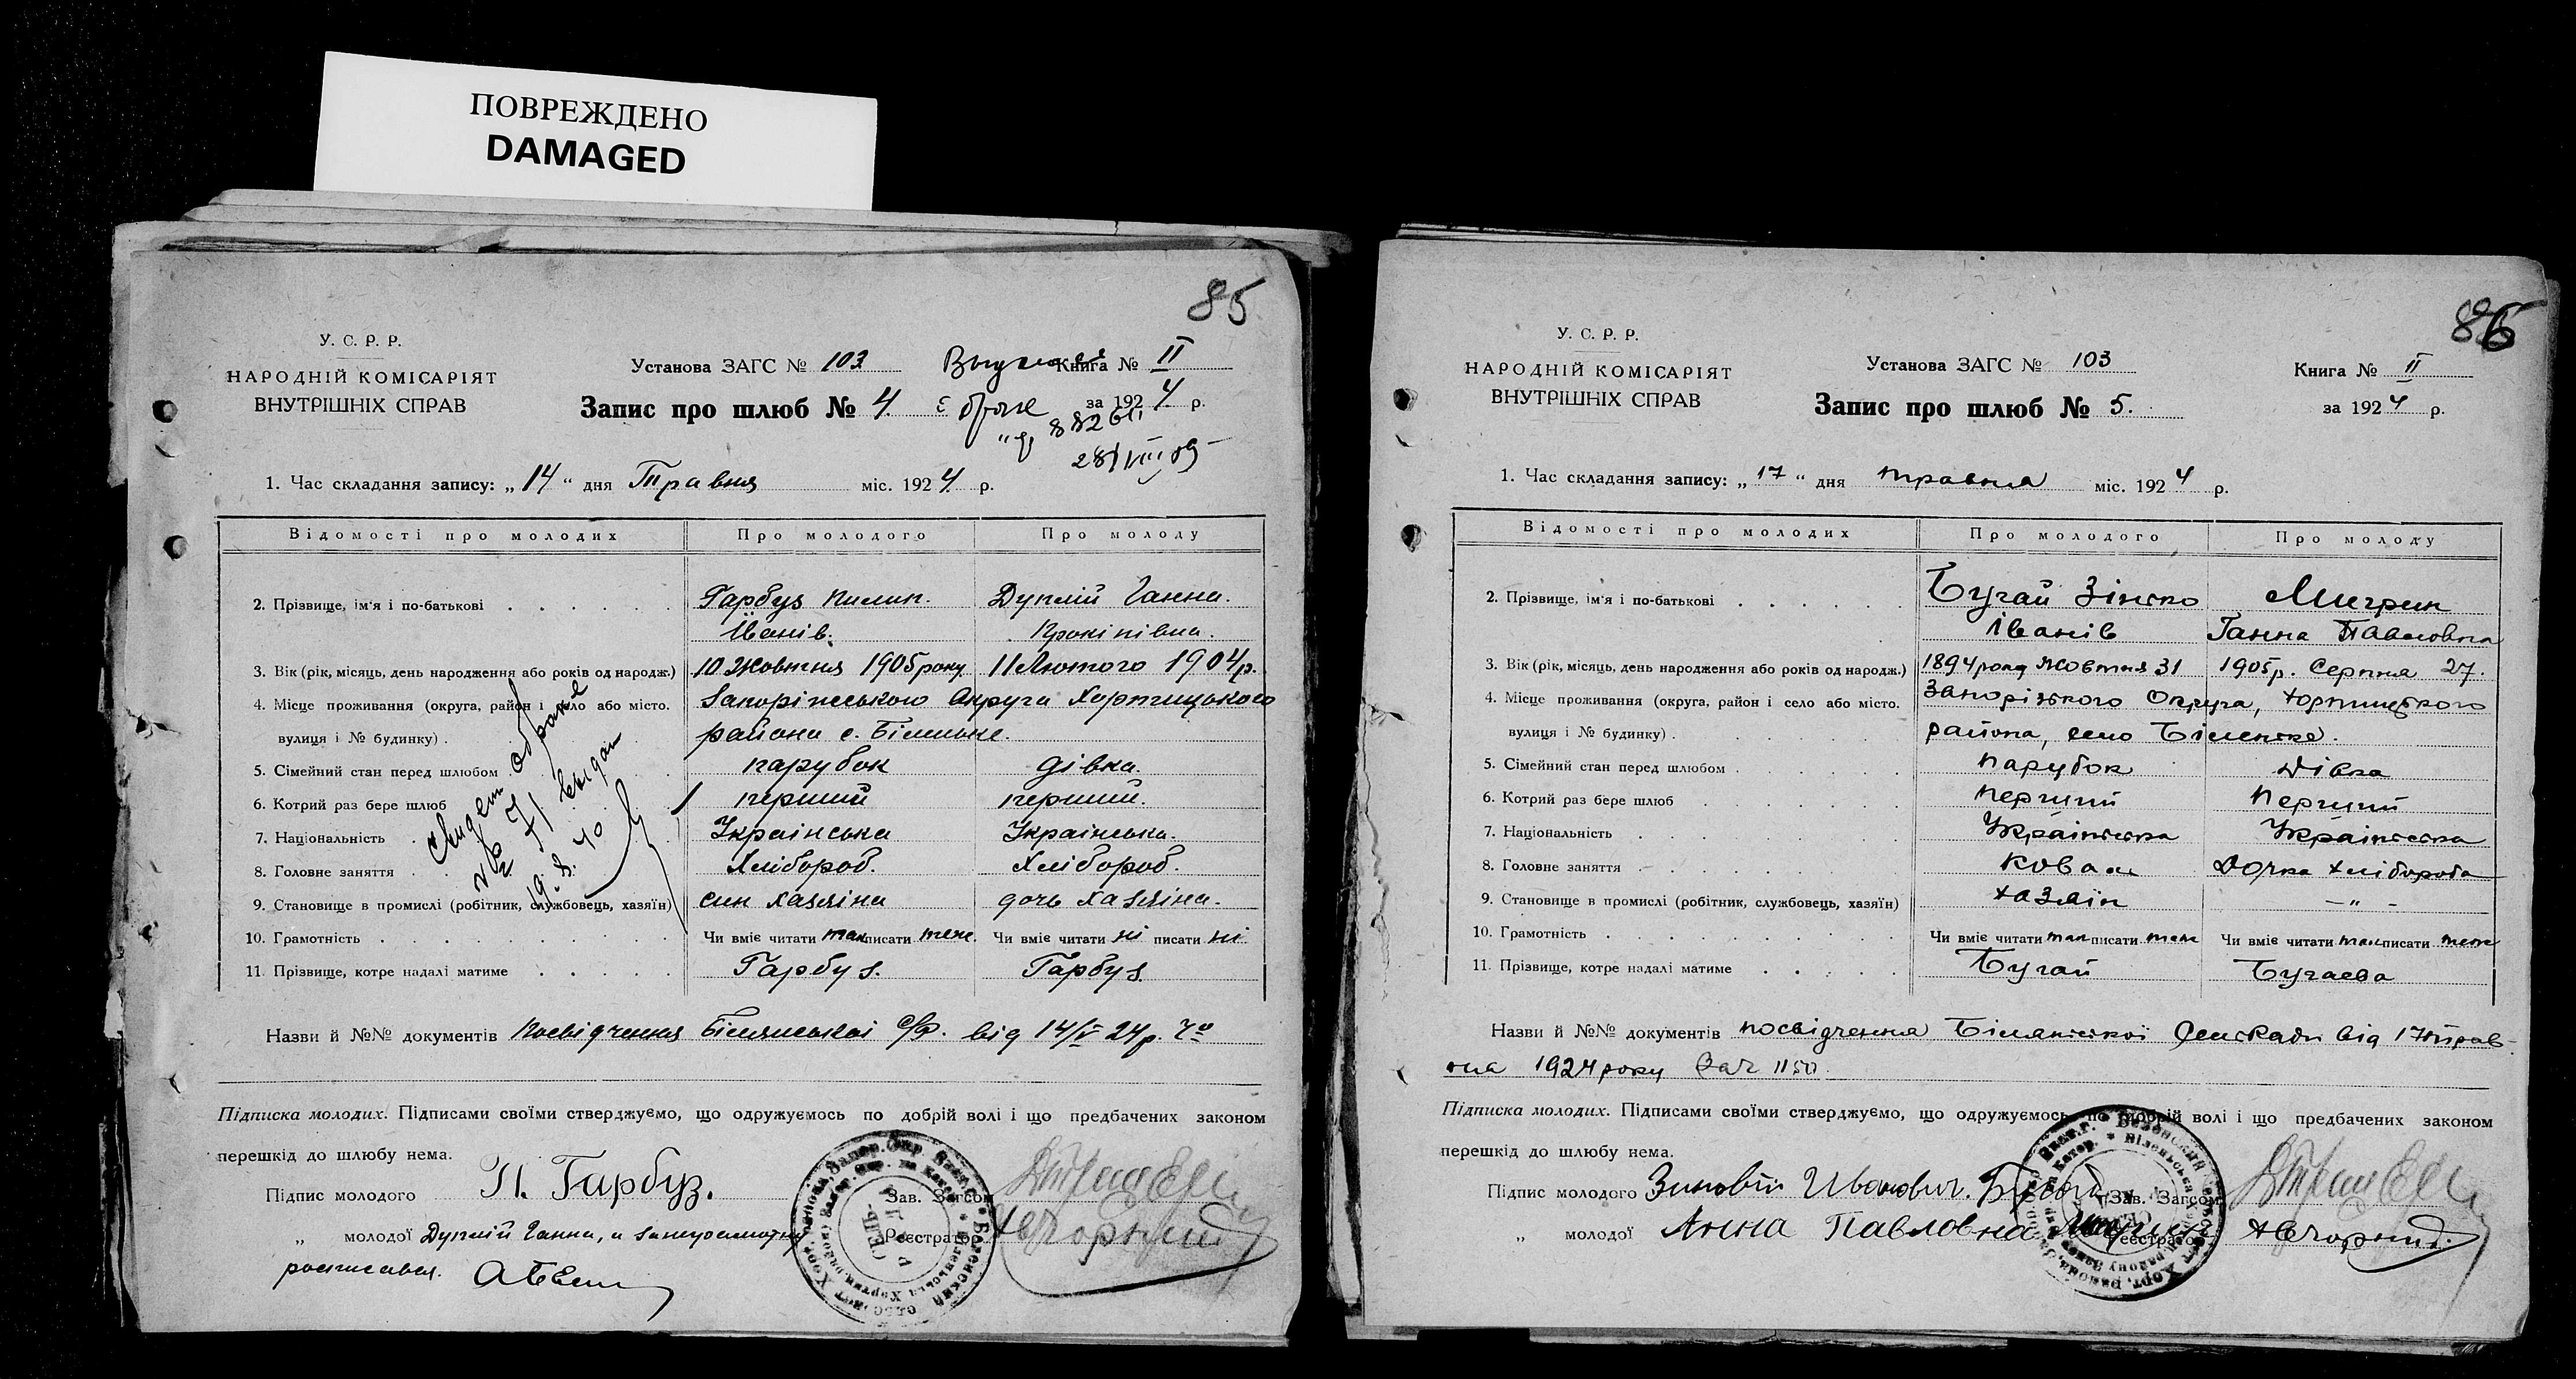 ПОВРЕЖДЕНО
DAMAGED
85
У. С. Р. Р.
НАРОДНІЙ КОМІСАРІЯТ
ВНУТРІШНІХ СПРАВ
Установа ЗАГС № 103
Книга № II
Запис про шлюб № 4.
за 1924 р.
1. Час складання запису: „14“ дня Травня міс. 1924 р.
Відомості про молодих Про молодого Про молоду
2. Прізвище, ім'я і по-батькові Гарбуз Пилип. Дуплій Ганна.
Іванів. Прокіпівна.
3. Вік (рік, місяць, день народження або років од народж.) 10 Жовтня 1905 року 11 Лютого 1904 р.
4. Місце проживання (округа, район і село або місто. Запоріжського Округа Хортицького
вулиця і № будинку) района с. Біленьке.
5. Сімейний стан перед шлюбом парубок дівка.
6. Котрий раз бере шлюб перший перший.
7. Національність Українська Українська.
8. Головне заняття Хлібороб. Хлібороб.
9. Становище в промислі (робітник, службовець, хазяїн) син хазяіна дочь хазяіна.
10. Грамотність Чи вміє читати так писати теж. Чи вміє читати ні писати ні.
11. Прізвище, котре надалі матиме Гарбуз. Гарбуз.
Назви й №№ документів Посвідчення Білянської с/р. від 14/V 24 р.
Підписка молодих. Підписами своїми стверджуємо, що одружуємось по добрій волі і що предбачених законом
перешкід до шлюбу нема.
Підпис молодого П. Гарбуз.
Зав. Загсом
„ молодої Дуплій Ганна, а
Реєстратор
росписався.
86
У. С. Р. Р.
НАРОДНІЙ КОМІСАРІЯТ
ВНУТРІШНІХ СПРАВ
Установа ЗАГС № 103
Книга № II
Запис про шлюб № 5.
за 1924 р.
1. Час складання запису: „17“ дня травня міс. 1924 р.
Відомості про молодих Про молодого Про молоду
2. Прізвище, ім'я і по-батькові Бугай Зінько
Іванів Ганна Павловна
3. Вік (рік, місяць, день народження або років од народж.) 1894 року Жовтня 31 1905 р. Серпня 27.
4. Місце проживання (округа, район і село або місто. Запорізького Округа, Хортицького
вулиця і № будинку) района, село Біленьке.
5. Сімейний стан перед шлюбом парубок дівка
6. Котрий раз бере шлюб перший перший
7. Національність Українська Українська
8. Головне заняття коваль Дочка хлібороба
9. Становище в промислі (робітник, службовець, хазяїн) хазяїн — „ —
10. Грамотність Чи вміє читати так писати теж Чи вміє читати так писати теж
11. Прізвище, котре надалі матиме Бугай Бугаєва
Назви й №№ документів посвідчення Білянської Сельради від 17 трав-
ня 1924 року
Підписка молодих. Підписами своїми стверджуємо, що одружуємось по добрій волі і що предбачених законом
перешкід до шлюбу нема.
Підпис молодого Зиновій Иванович. Бугай
Зав. Загсом
„ молодої Анна Павловна
Реєстратор